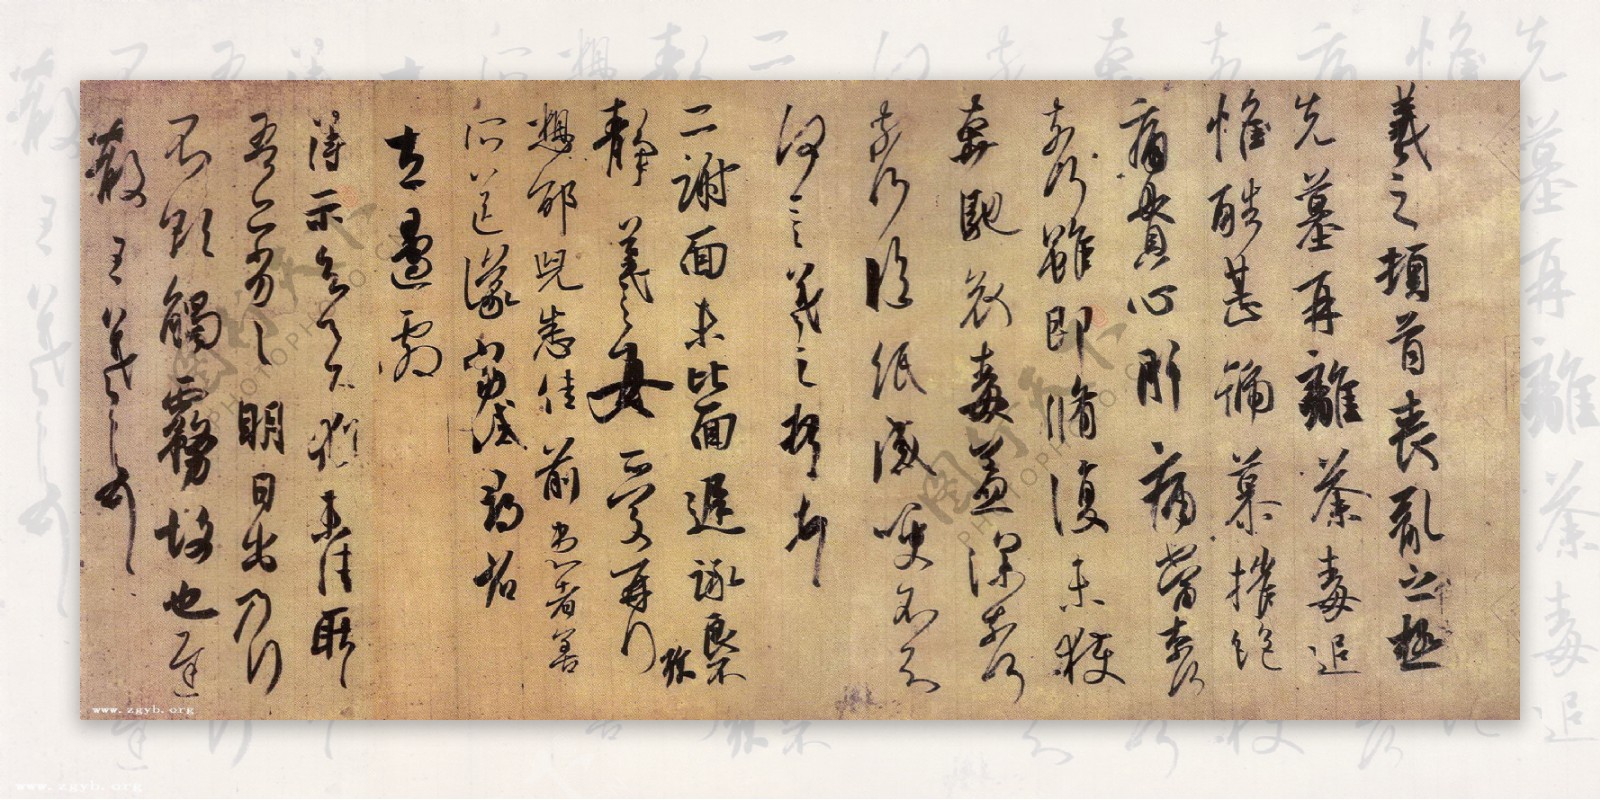 羲之頓首喪亂之極
先墓再離荼毒追
惟酷甚號慕摧絕
痛貫心肝痛當奈何
奈何雖即脩復未獲
奔馳哀毒益深奈何
奈何臨紙感哽不知
何言羲之頓首頓首
二謝面未比面遲詠良不
靜羲之女愛再拜
想邵兒悉佳前患者善
所送議當試尋省
左邊劇
得示知足下猶未佳耿耿
吾亦劣劣明日出乃行
不欲觸霧故也遲
散王羲之頓首
www.zgyb.org
www.zgyb.org